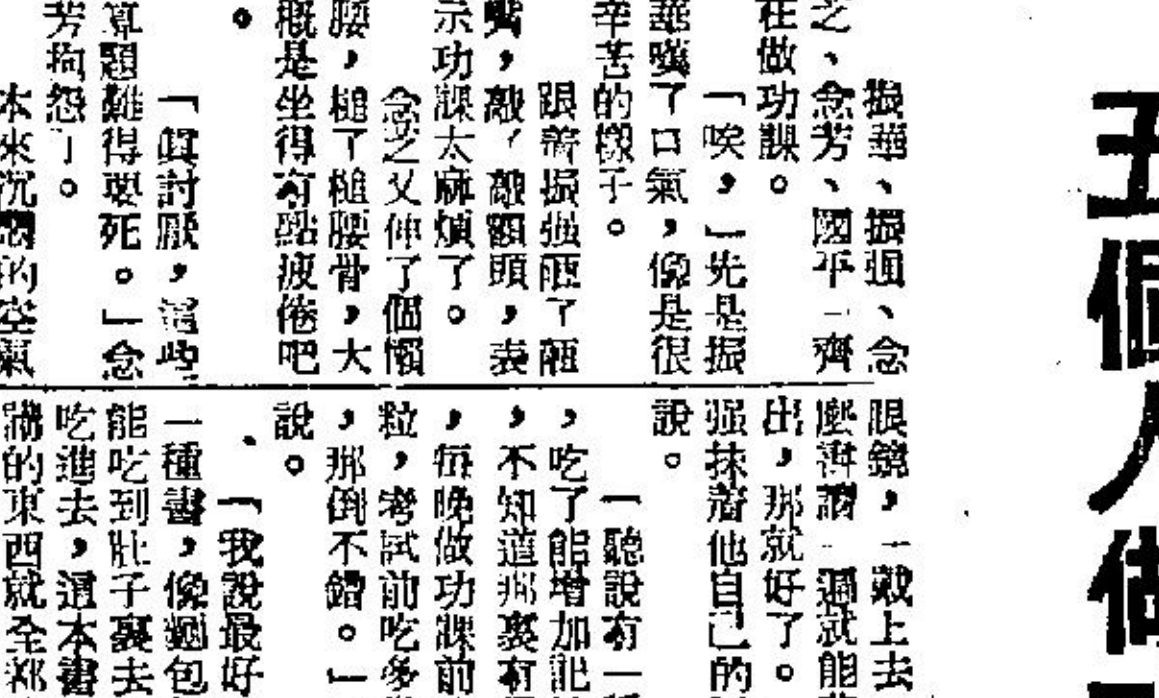 五個人做
振華、振强、念
之、念芳、國平一齊
在做功課。
「唉，」先是振
華嘆了口氣，像是很
辛苦的樣子。
跟着振强咂了咂
嘴，敲了敲額頭，表
示功課太麻煩了。
念之又伸了個懶
腰，槌了槌腰骨，大
概是坐得有點疲倦吧
。
「眞討厭，這些
算題難得要死。」念
芳抱怨了。
本來沉悶的空氣
眼鏡，一戴上去
麼書讀一遍就能
出，那就好了。
强抹着他自己的
說。
「聽說有一種
，吃了能增加記
，不知道那裏有
，每晚做功課前
粒，考試前吃多
，那倒不錯。」
說。
「我說最好
一種書，像麵包
能吃到肚子裏去
吃進去，這本書
講的東西就全都